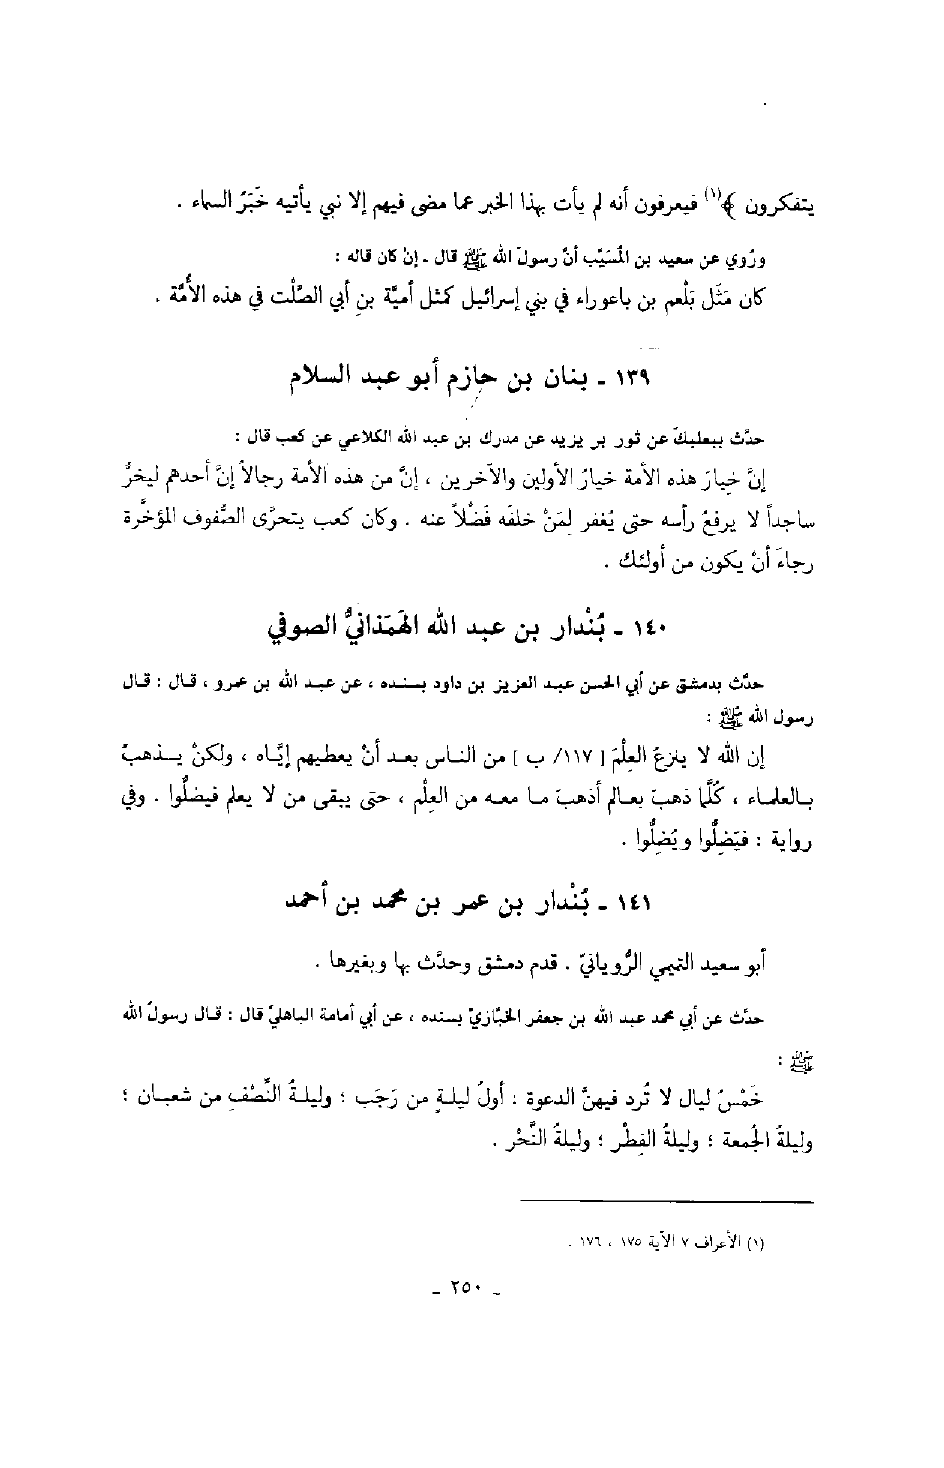 يتفكرون ﴾(١) فيعرفون أنه لم يأت بهذا الخبر عما مضى فيهم إلا نبي يأتيه خَبَرُ السماء .
ورُوي عن سعيد بن المُسَيّب أنّ رسولَ الله ﷺ قال ـ إنْ كان قاله :
كان مَثَل بَلْعم بن باعوراء في بني إسرائيل كمثل أميَّة بنِ أبي الصَّلْت في هذه الأُمَّة .
١٣٩ ـ بنان بن حازم أبو عبد السلام
حدَّث ببعلبكَ عن ثور بر يزيد عن مدرك بن عبد الله الكلاعي عن كعب قال :
إنَّ خِيارَ هذه الأمة خيارُ الأولين والآخرين ، إنَّ من هذه الأمة رجالاً إنَّ أحدهم ليخرُّ
ساجداً لا يرفعُ رأسه حتى يُغفر لِمَنْ خلفَه فَضْلاً عنه . وكان كعب يتحرَّى الصُّفوف المؤخَّرة
رجاءَ أنْ يكون من أولئك .
١٤٠ ـ بُنْدار بن عبد الله الهَمَذانيُّ الصوفي
حدَّث بدمشق عن أبي الحسن عبد العزيز بن داود بسنده ، عن عبد الله بن عمرو ، قال : قال
رسول الله ﷺ :
إن الله لا ينزعُ العِلْمَ [ ١١٧/ ب ] من الناس بعد أنْ يعطيهم إيَّاه ، ولكنْ يذهبُ
بالعلماء ، كُلَّما ذهبَ بعالم أذهبَ ما معه من العِلْم ، حتى يبقى من لا يعلم فيضلُّوا . وفي
رواية : فيَضِلُّوا ويُضِلُّوا .
١٤١ ـ بُنْدار بن عمر بن محمد بن أحمد
أبو سعيد التميمي الرُّويانيّ . قدم دمشق وحدَّث بها وبغيرها .
حدَّث عن أبي محمد عبد الله بن جعفر الخبّازيّ بسنده ، عن أبي أمامة الباهليّ قال : قال رسولُ الله
ﷺ :
خَمْسُ ليال لا تُرد فيهنَّ الدعوة : أولُ ليلةٍ من رَجَب ؛ وليلةُ النِّصْفِ من شعبان ؛
وليلةُ الجُمعة ؛ وليلةُ الفِطْر ؛ وليلةُ النَّحْر .
(١) الأعراف ٧ الآية ١٧٥ ، ١٧٦ .
ـ ٢٥٠ ـ